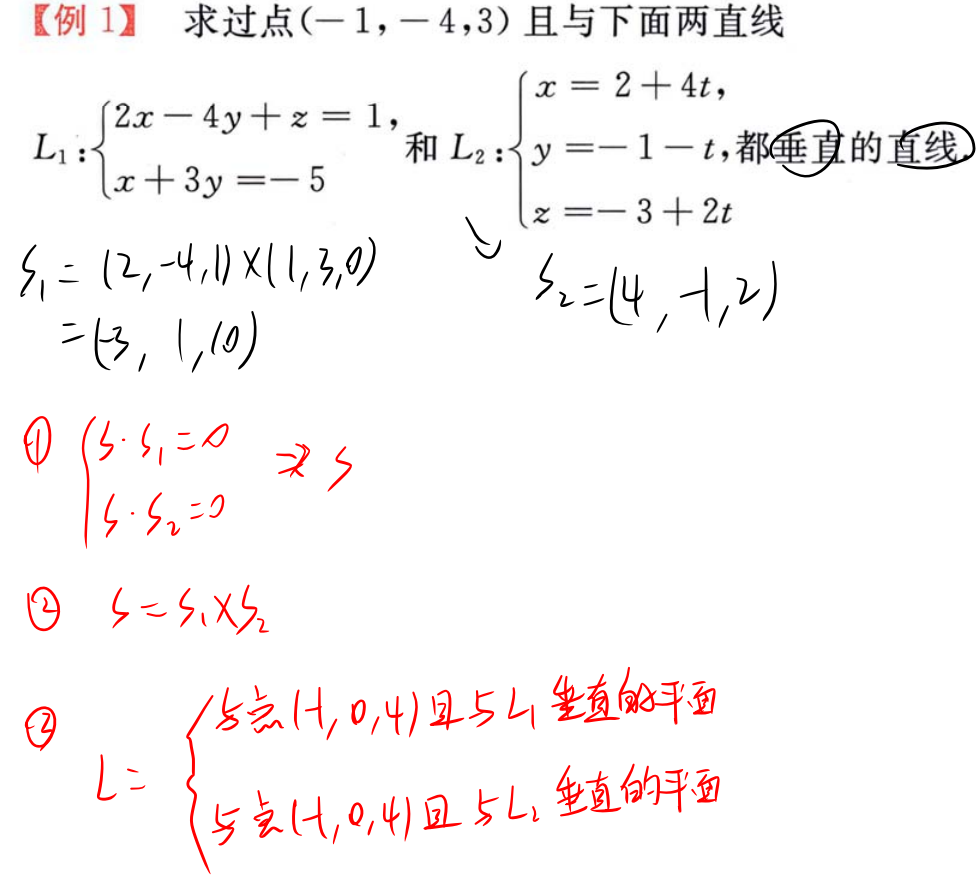 【例 1】 求过点(－1,－4,3)且与下面两直线
L₁:{2x－4y＋z＝1, x＋3y＝－5 和 L₂:{x＝2＋4t, y＝－1－t, z＝－3＋2t 都垂直的直线.
S₁=(2,-4,1)×(1,3,0)
=(-3, 1,10)
S₂=(4,-1,2)
① {S·S₁=0
S·S₂=0
⇒ S
② S=S₁×S₂
③ L= {与点(-1,0,4)且与L₁垂直的平面
与点(-1,0,4)且与L₂垂直的平面